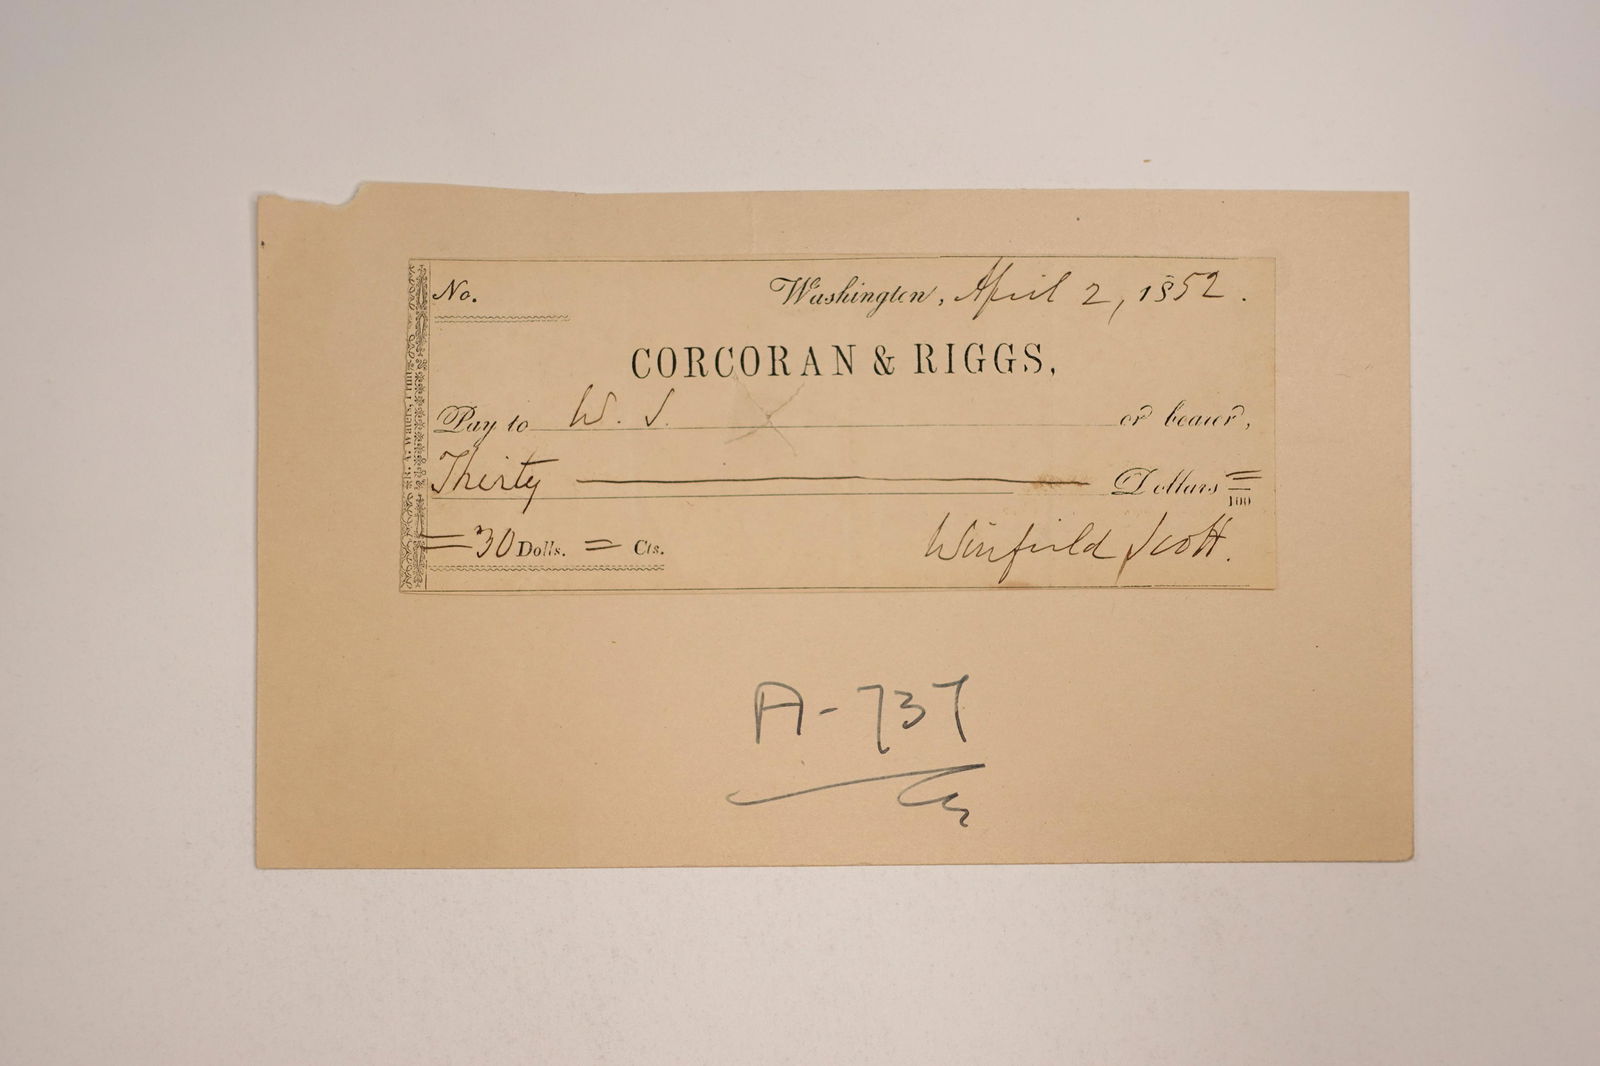 No. Washington, April 2, 1852.
CORCORAN & RIGGS,
Pay to W. S. or bearer,
Thirty Dollars = /100
= 30 Dolls. = Cts.
Winfield Scott.
A-737